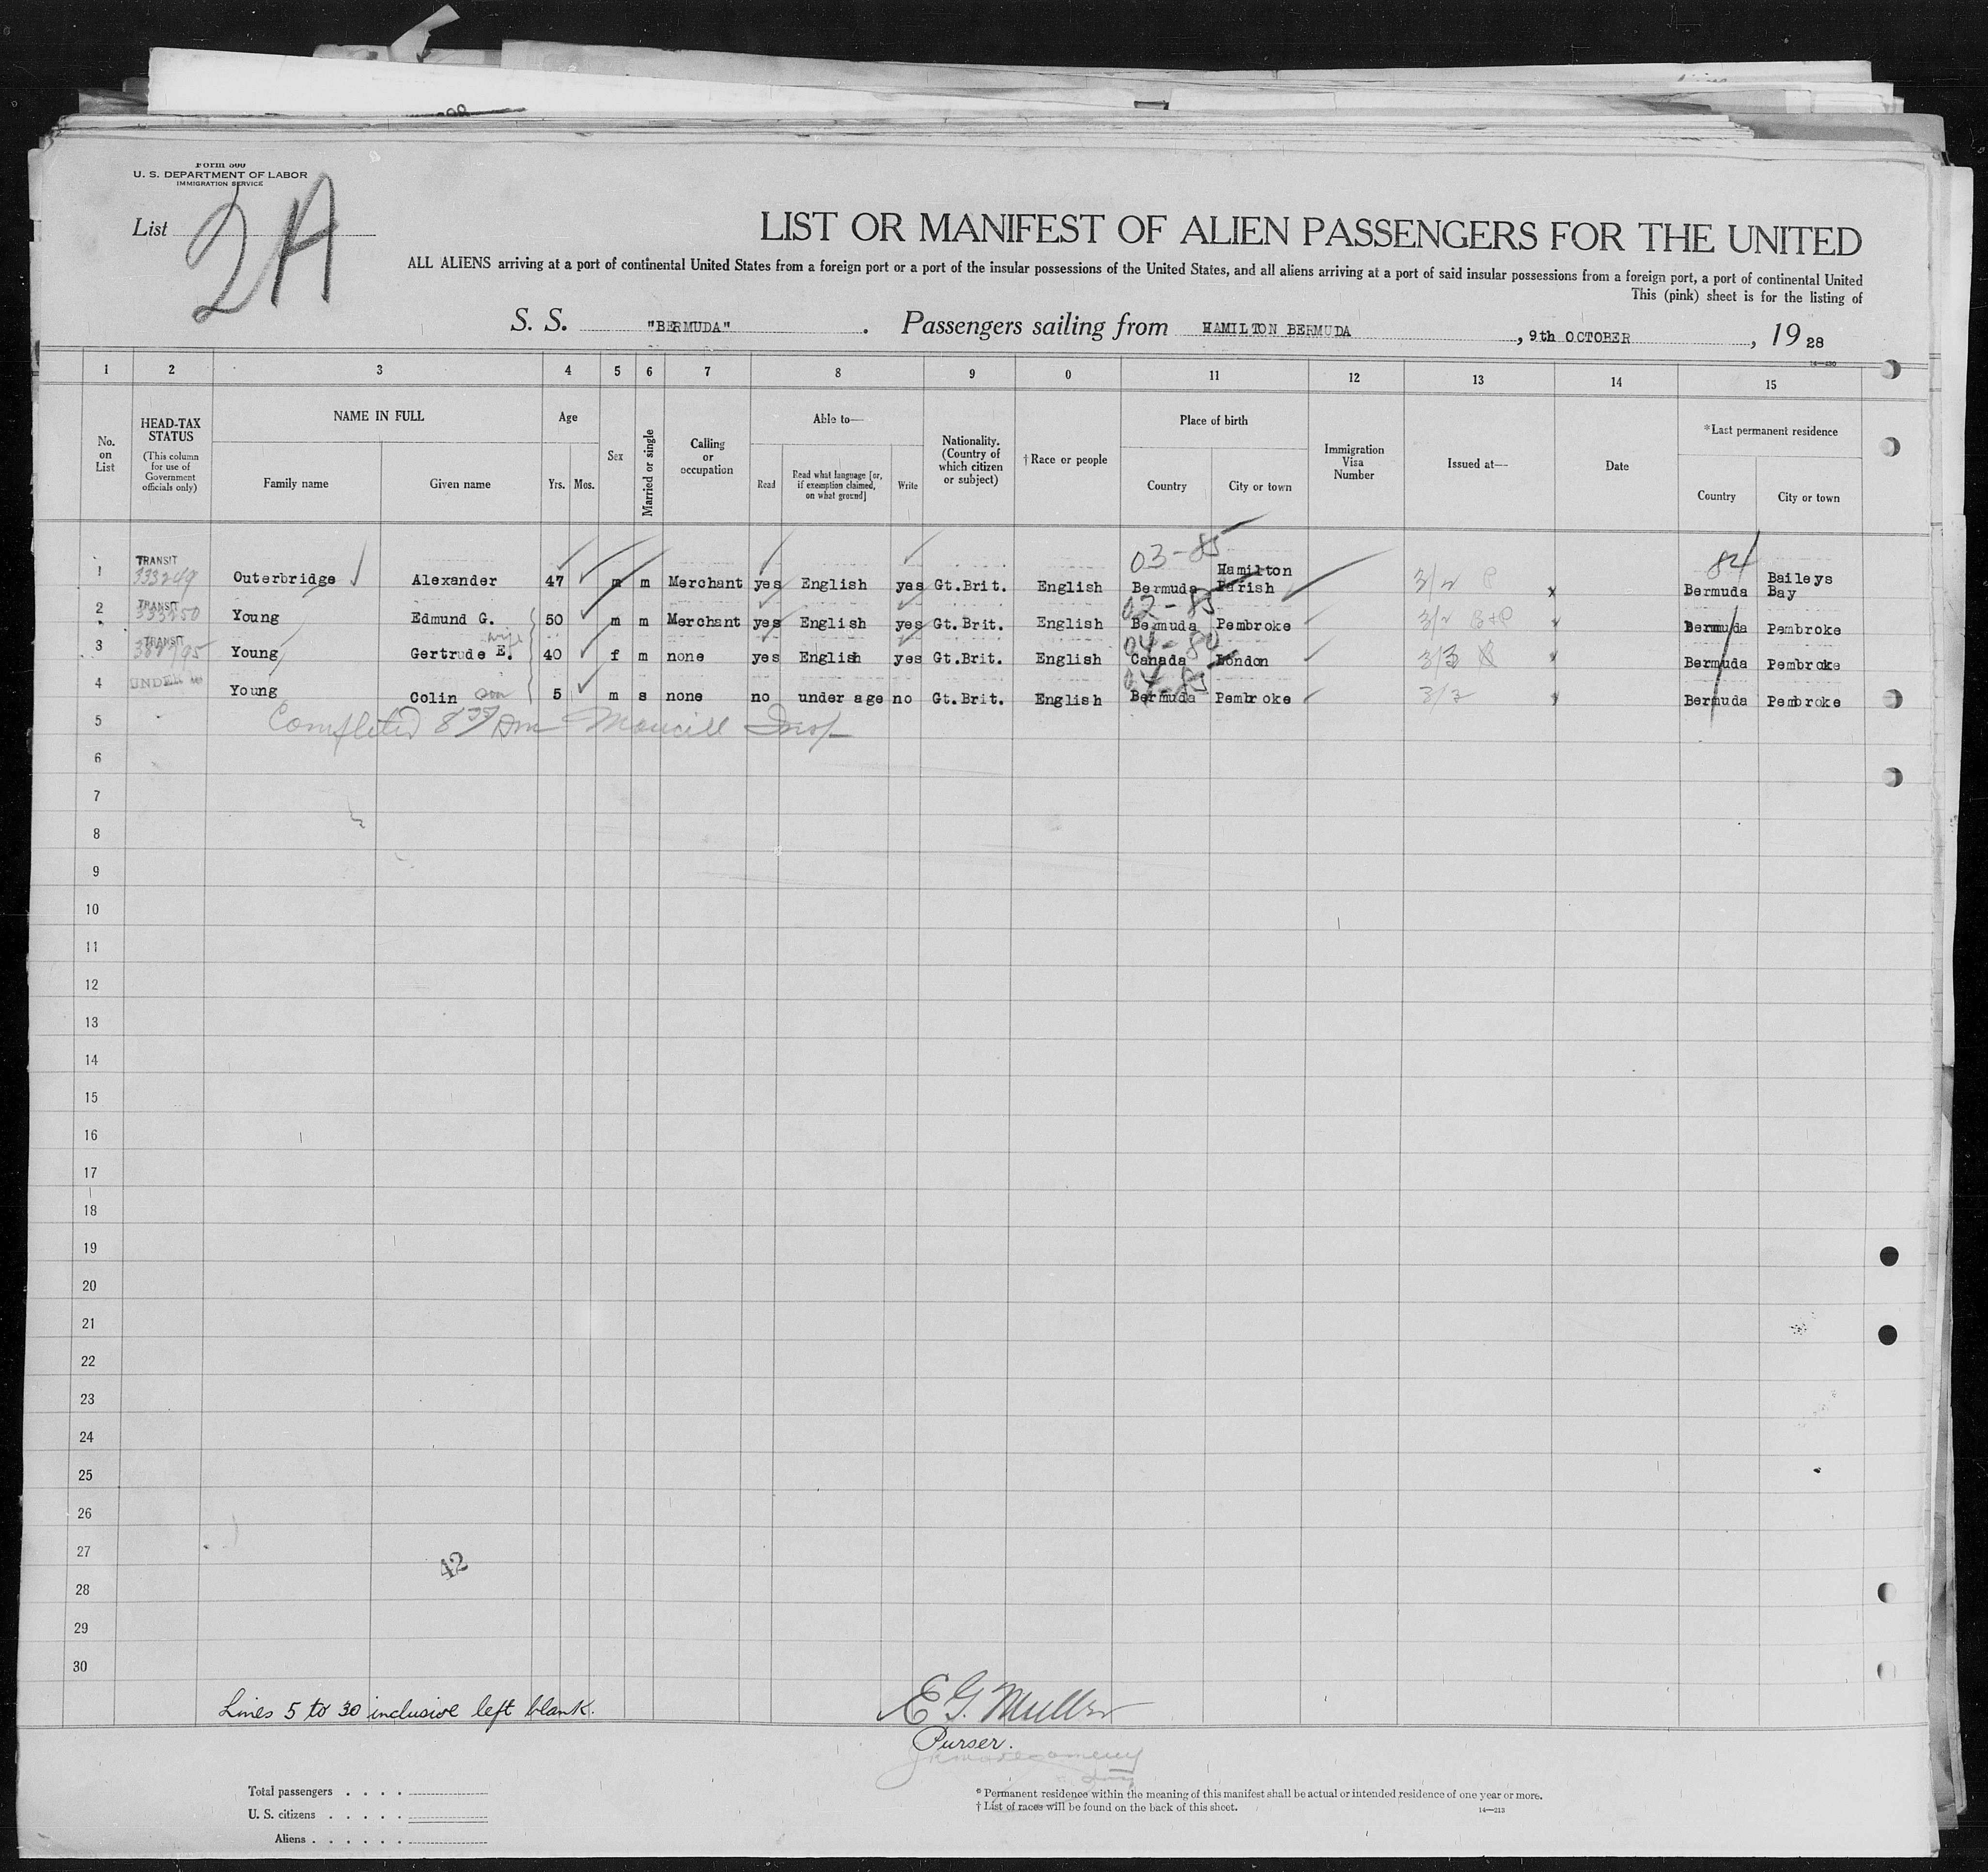 Form 500
U. S. DEPARTMENT OF LABOR
IMMIGRATION SERVICE
List 2A
LIST OR MANIFEST OF ALIEN PASSENGERS FOR THE UNITED
ALL ALIENS arriving at a port of continental United States from a foreign port or a port of the insular possessions of the United States, and all aliens arriving at a port of said insular possessions from a foreign port, a port of continental United
This (pink) sheet is for the listing of
S. S. "BERMUDA" . Passengers sailing from HAMILTON BERMUDA , 9th OCTOBER , 19 28
14—230
1 2 3 4 5 6 7 8 9 0 11 12 13 14 15
No. on List
HEAD-TAX STATUS
(This column for use of Government officials only)
NAME IN FULL
Family name
Given name
Age
Yrs. Mos.
Sex
Married or single
Calling or occupation
Able to—
Read
Read what language [or, if exemption claimed, on what ground]
Write
Nationality. (Country of which citizen or subject)
† Race or people
Place of birth
Country
City or town
Immigration Visa Number
Issued at—
Date
*Last permanent residence
Country
City or town
03-85
84
1 TRANSIT 333249 Outerbridge Alexander 47 m m Merchant yes English yes Gt.Brit. English Bermuda Hamilton Parish 3/2 P x Bermuda Baileys Bay
02-85
2 TRANSIT 333250 Young Edmund G. 50 m m Merchant yes English yes Gt.Brit. English Bermuda Pembroke 3/2 Bermuda Pembroke
wife
04-80
3 TRANSIT Young Gertrude E. 40 f m none yes English yes Gt.Brit. English Canada London 3/3 Bermuda Pembroke
04-85
4 UNDER 16 Young Colin son 5 m s none no under age no Gt.Brit. English Bermuda Pembroke 3/3 Bermuda Pembroke
5 Completed Insp
6
7
8
9
10
11
12
13
14
15
16
17
18
19
20
21
22
23
24
25
26
27
42
28
29
30
Lines 5 to 30 inclusive left blank.
E G. Muller
Purser.
Total passengers . . . .
U. S. citizens . . . . .
Aliens . . . . . .
* Permanent residence within the meaning of this manifest shall be actual or intended residence of one year or more.
† List of races will be found on the back of this sheet.
14—213